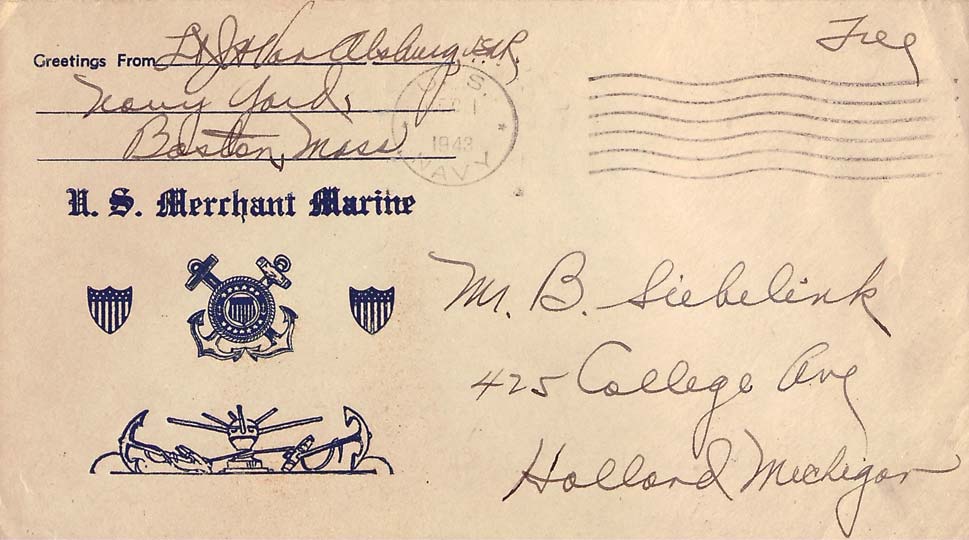 Greetings From Lt. J H Van Alsburg
Navy Yard,
Boston, Mass
Free
U.S.
1943
NAVY
U. S. Merchant Marine
Mr. B. Siebelink
425 College Ave
Holland Michigan